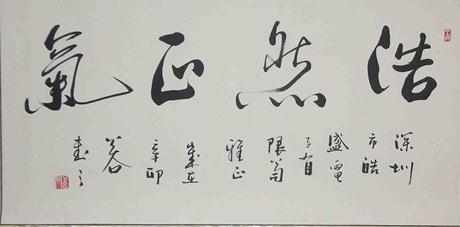 浩然正氣
深圳
市皓
盛電
子有
限公司
雅正
歲在
辛卯